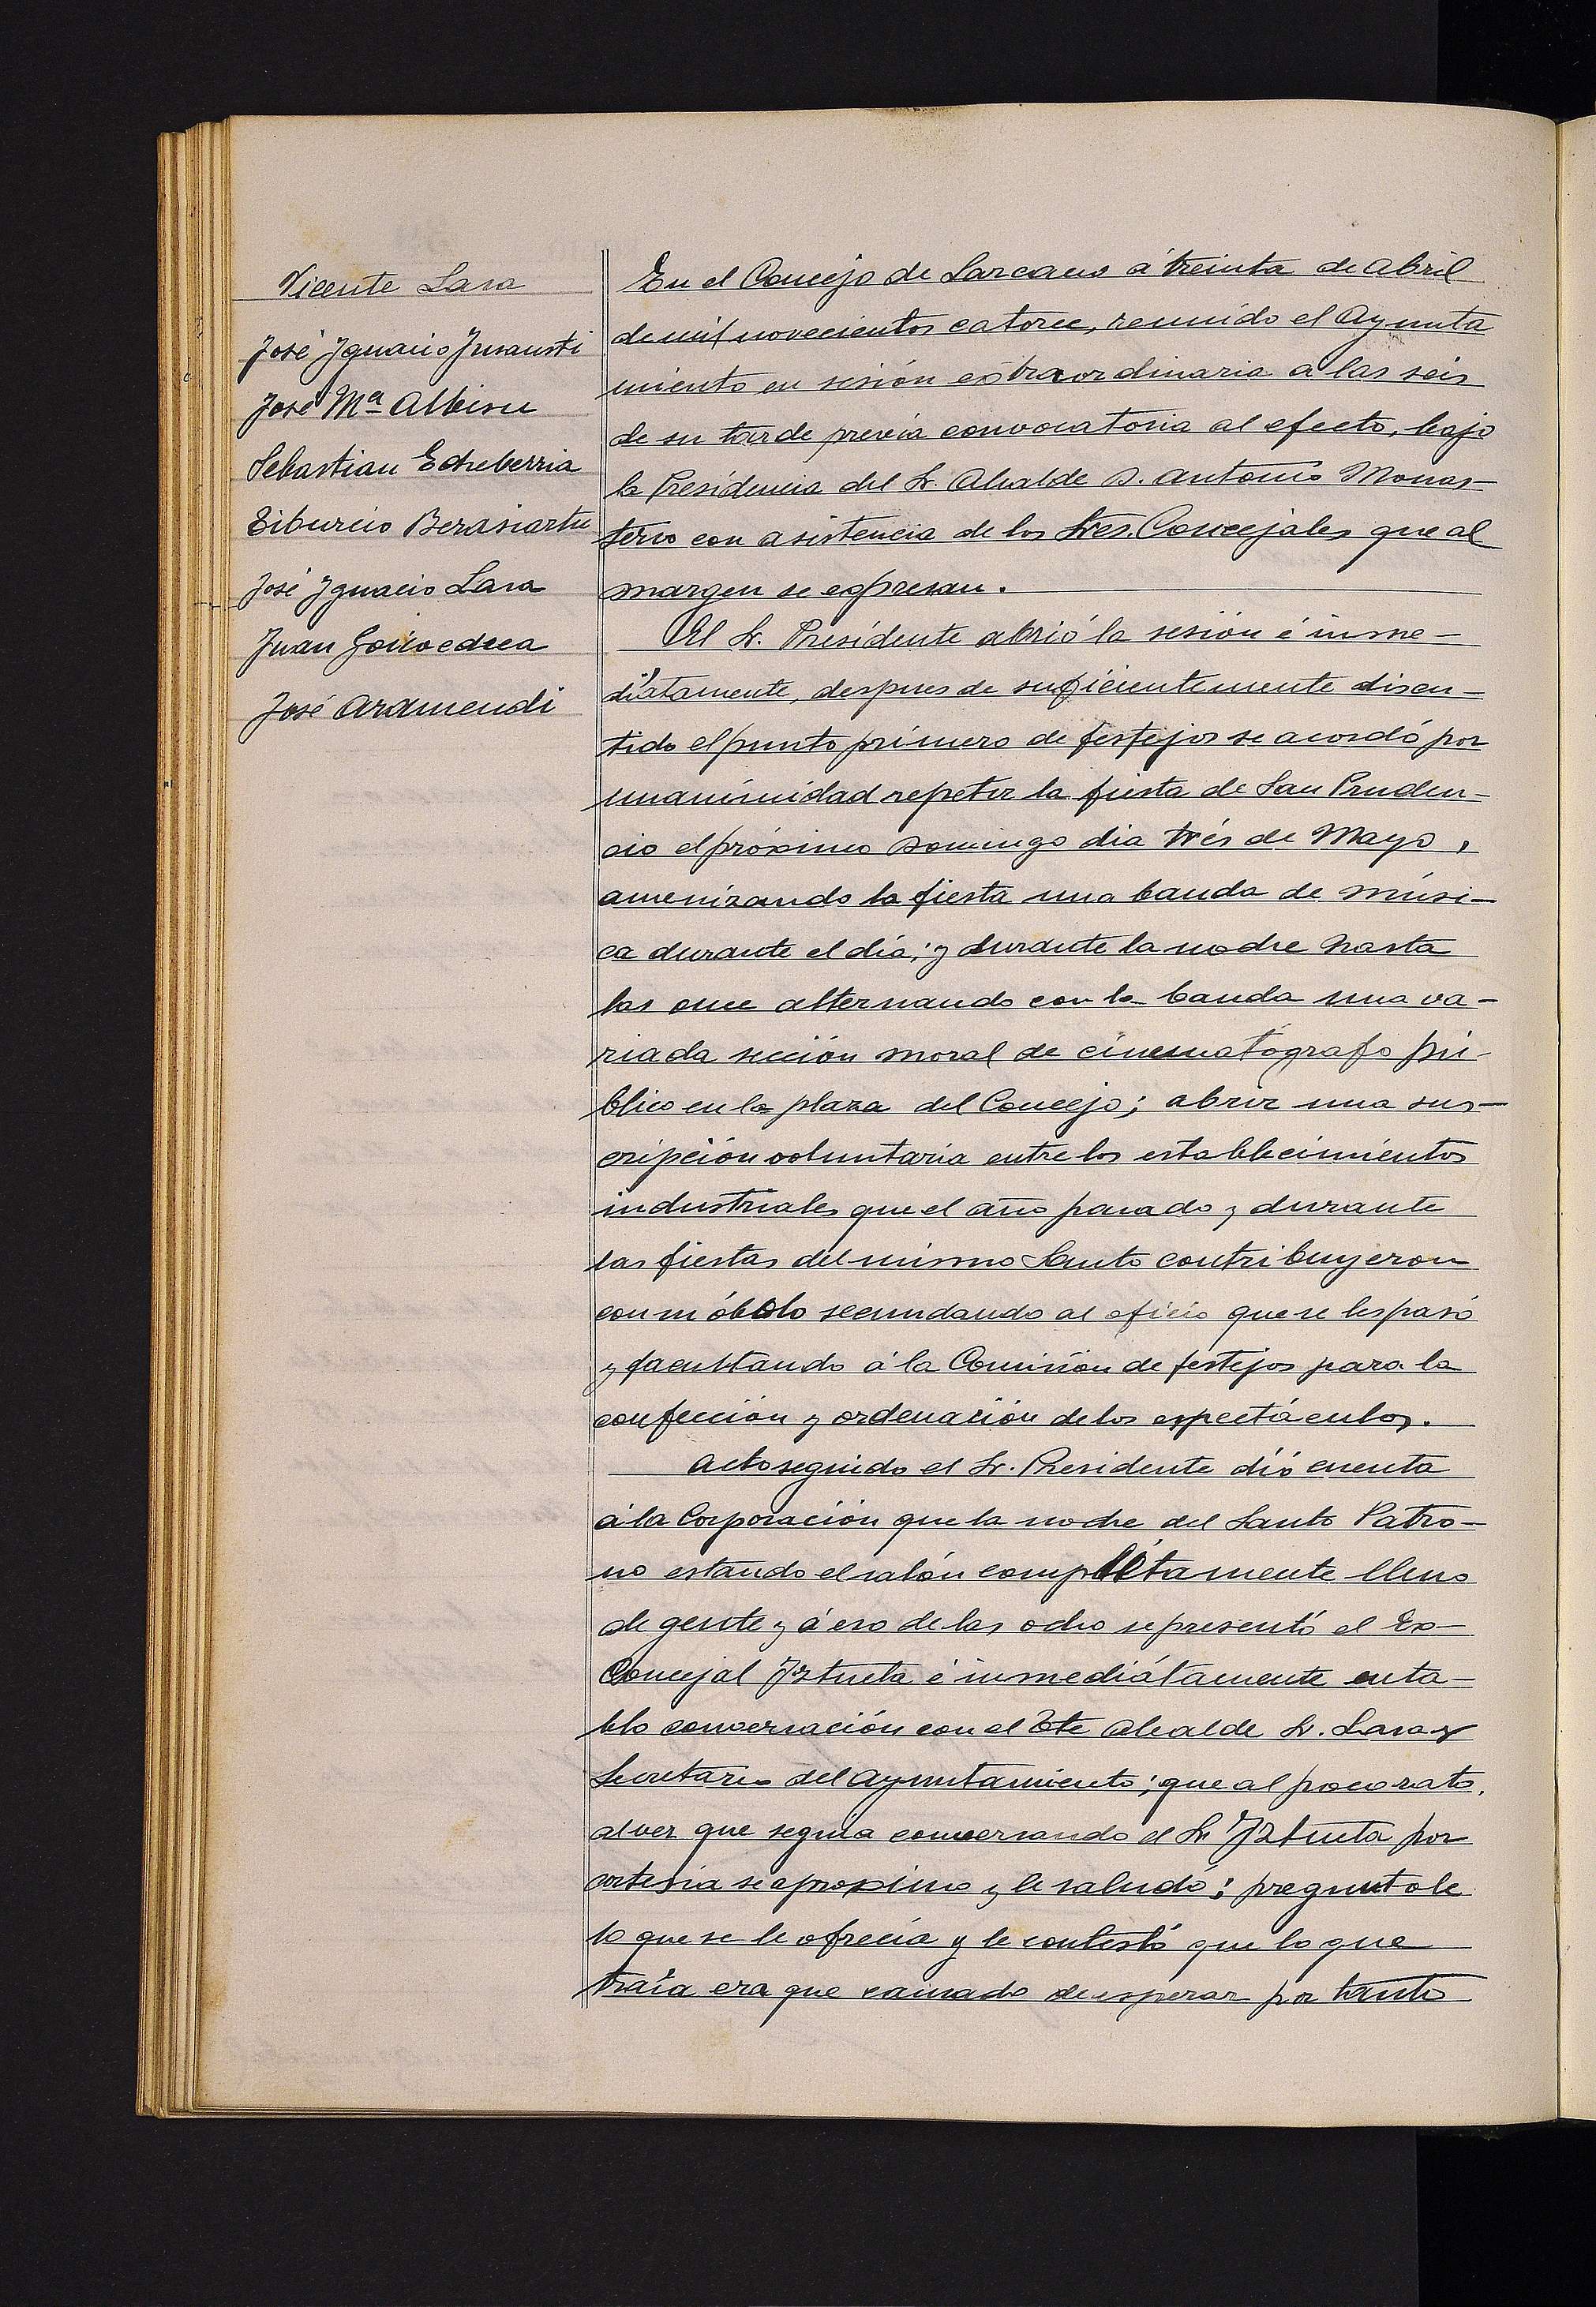 Vicente Lasa
José Ignacio Insausti
José Mª Albisu
Sebastian Echeberria
Tiburcio Berasiartu
José Ignacio Lasa
Juan Goicoechea
José Aramendi
En el Concejo de Lazcano á treinta de abril
de mil novecientos catorce, reunido el Ayunta
miento en sesión extraordinaria a las seis
de su tarde previa convocatoria al efecto, bajo
la Presidencia del Sr. Alcalde D. Antonio Monas-
terio con asistencia de los Sres. Concejales que al
margen se expresan.
El Sr. Presidente abrió la sesión é inme-
diatamente, despues de suficientemente discu-
tido el punto primero de festejos se acordó por
unanimidad repetir la fiesta de San Pruden-
cio el próximo Domingo dia trés de Mayo,
amenizando la fiesta una banda de músi-
ca durante el día; y durante la noche hasta
las once alternando con la banda una va-
riada sección moral de cinematógrafo pú-
blico en la plaza del Concejo; abrir una sus-
cripción voluntaria entre los establecimientos
industriales que el año pasado y durante
las fiestas del mismo Santo contribuyeron
con su óbolo secundando al oficio que se les pasó
y facultando á la Comisión de festejos para la
confección y ordenación de los espectáculos.
Acto seguido el Sr. Presidente dió cuenta
á la Corporación que la noche del Santo Patro-
no estando el salón completamente lleno
de gente y á eso de las ocho se presentó el Ex-
Concejal Iztueta é inmediátamente enta-
blo conversación con el Tte Alcalde Sr. Lasa y
Secretario del Ayuntamiento; que al poco rato,
al ver que seguia conversando el Sr Iztueta por
cortesia se aproximo y le saludó; preguntole
lo que se le ofrecia y le contestó que lo que
traía era que cansado de esperar por tanto